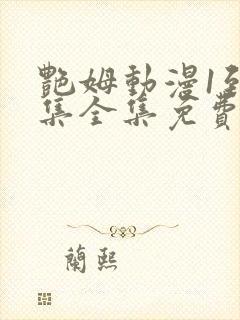 艷姆動漫1至
集全集免費
蘭熙